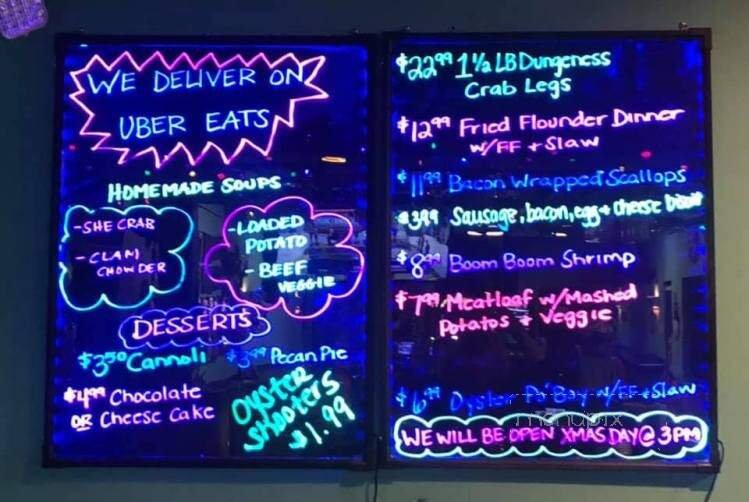 WE DELIVER ON
UBER EATS
HOMEMADE SOUPS
-SHE CRAB
-CLAM
CHOWDER
-LOADED
POTATO
-BEEF
VEGGIE
DESSERTS
$3.50 Cannoli
$3.99 Pecan Pie
$4.99 Chocolate
OR Cheese Cake
OYSTER
SHOOTERS
$1.99
$22.99 1 1/2 LB Dungeness
Crab Legs
$12.99 Fried Flounder Dinner
w/FF + Slaw
$11.99 Bacon Wrapped Scallops
$3.99 Sausage, bacon, egg + cheese
$8.99 Boom Boom Shrimp
$7.99 Meatloaf w/Mashed
Potatos + Veggie
$6.99 Oyster Po' Boy w/FF + Slaw
menupix
WE WILL BE OPEN XMAS DAY @ 3PM